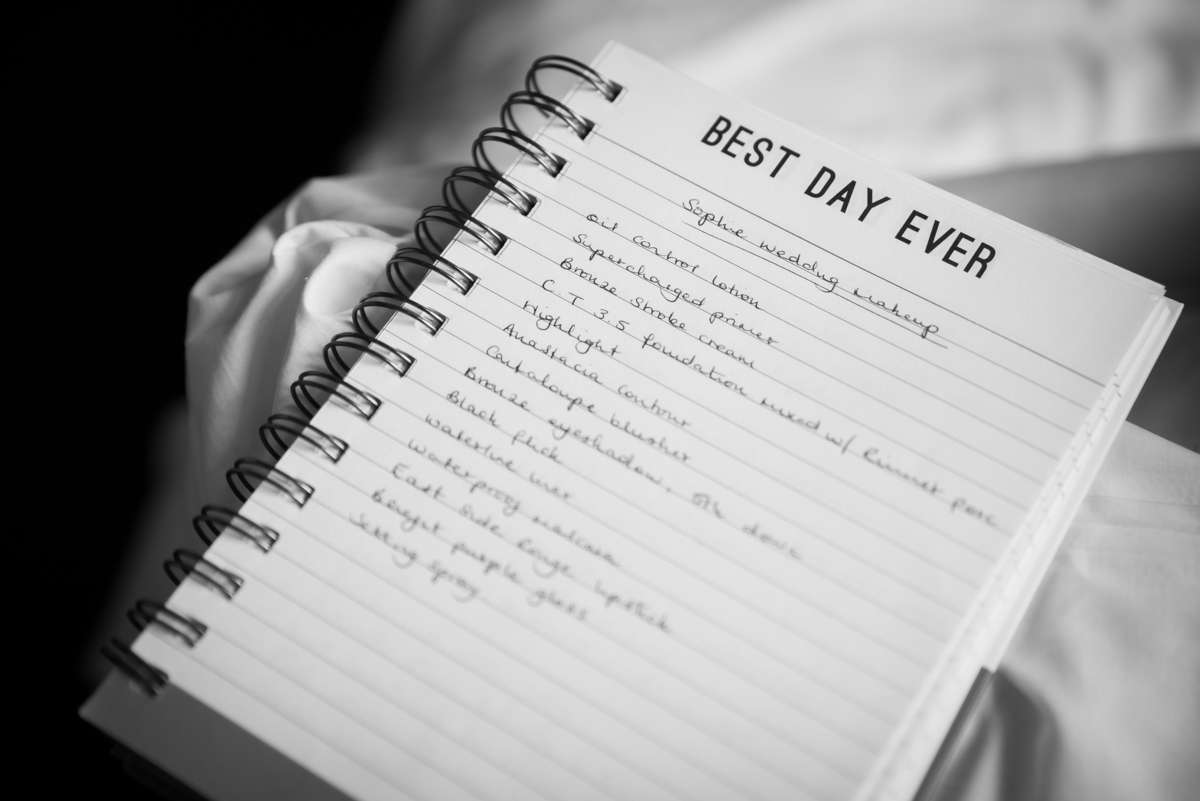 BEST DAY EVER
Sophie wedding makeup
oil control lotion
Supercharged primer
Bronze Strobe cream
C.T. 3.5 foundation mixed w/ Rimmel
Highlight
Anastacia contour
Cantaloupe blusher
Bronze eyeshadow,
Black flick
Waterline liner
Waterproof mascara
East Side Rouge lipstick
Benefit purple gloss
Setting spray